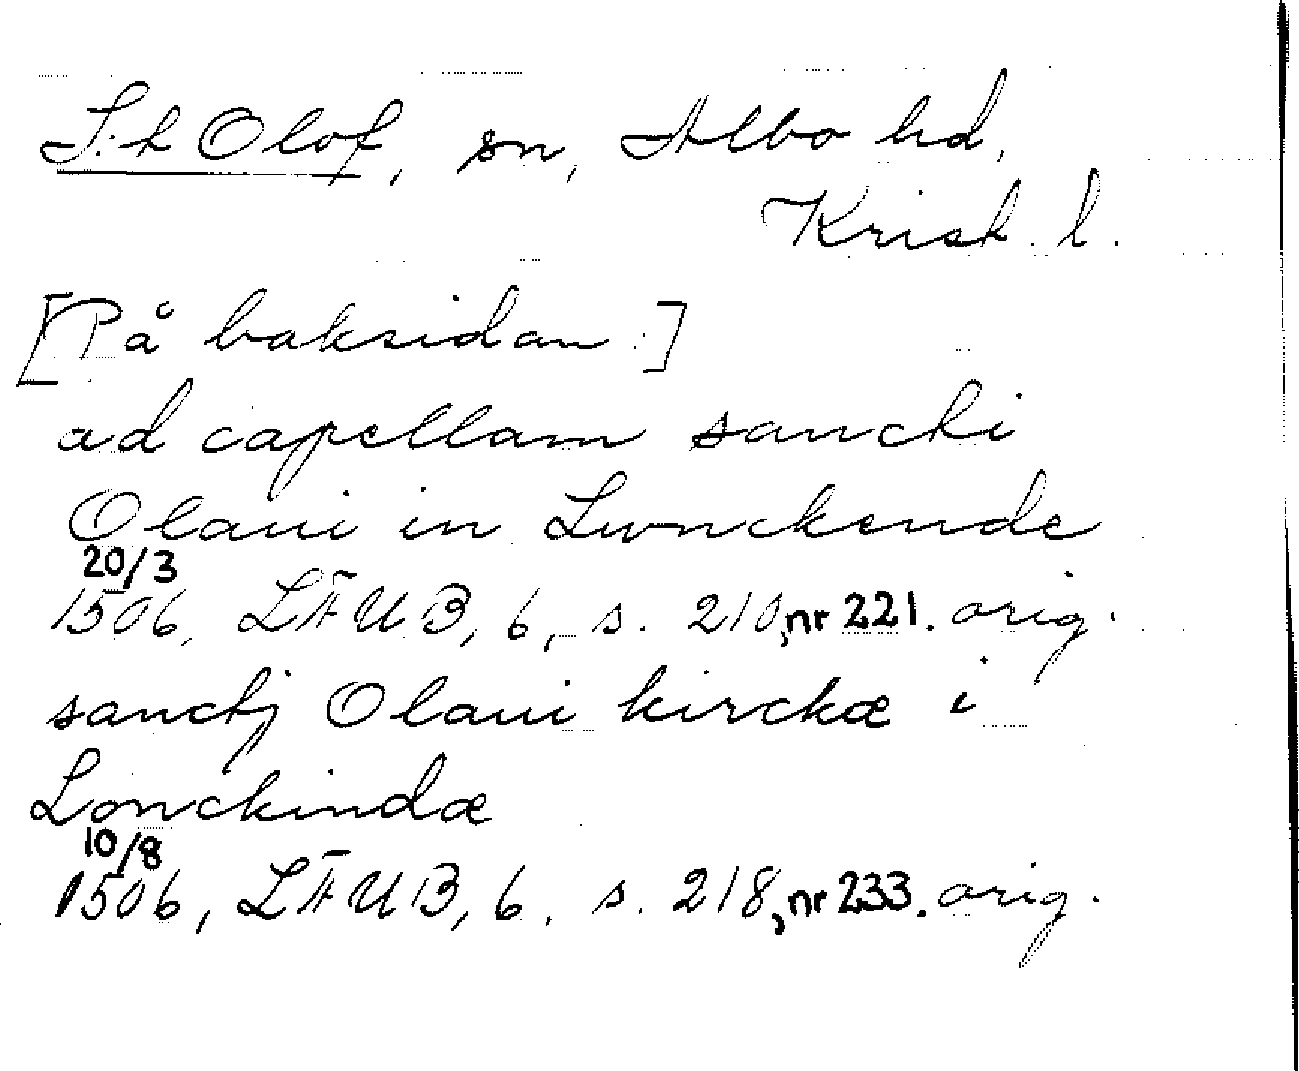 S:t Olof, sn, Albo hd,
Krist. l.
[På baksidan:]
ad capellam sancti
Olaui in Lwnckende
20/3
1506, LÄUB, 6, s. 210, nr 221. orig.
sanctj Olaui kirckæ i
Lonckindæ
10/8
1506, LÄUB, 6, s. 218, nr 233. orig.